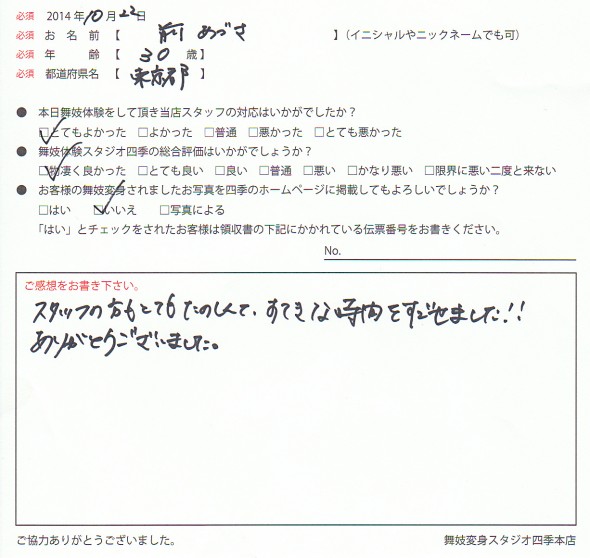 必須 2014年10月22日
必須 お名前【 前川 あづさ 】(イニシャルやニックネームでも可)
必須 年齢【 30歳】
必須 都道府県名【 東京都 】
● 本日舞妓体験をして頂き当店スタッフの対応はいかがでしたか？
□とてもよかった □よかった □普通 □悪かった □とても悪かった
● 舞妓体験スタジオ四季の総合評価はいかがでしょうか？
□物凄く良かった □とても良い □良い □普通 □悪い □かなり悪い □限界に悪い二度と来ない
● お客様の舞妓変身されましたお写真を四季のホームページに掲載してもよろしいでしょうか？
□はい □いいえ □写真による
「はい」とチェックをされたお客様は領収書の下記にかかれている伝票番号をお書きください。
No.
ご感想をお書き下さい。
スタッフの方もとてもたのしくて、すてきな時間をすごせました!!
ありがとうございました。
ご協力ありがとうございました。
舞妓変身スタジオ四季本店